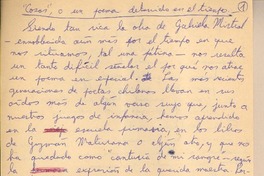 "Cosas", o un poema detenido en el tiempo. 1
Siendo tan rica la obra de Gabriela Mistral
- ennoblecida aún más por el tiempo en que
nos retiramos tal una pátina - nos resulta
un tanto difícil señalar el por qué nos atrae
un poema en especial. Las más recientes
generaciones de poetas chilenos llevan en sus
oídos más de algún verso suyo que, junto a
nuestros juegos de infancia, hemos aprendido
en la escuela primaria, en los libros
de Guzmán Maturana o algún otro, y que nos
ha quedado como canturía de mi sangre - según
la expresión de la querida maestra